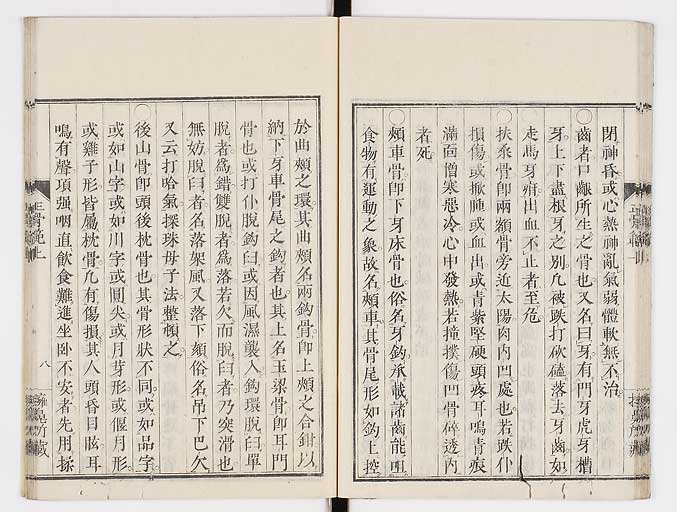 閉神昏或心熱神亂氣弱體軟無不治
〇齒者口齗所生之骨也又名曰牙有門牙虎牙槽
牙上下盡根牙之別凢被跌打砍磕落去牙齒如
走馬牙疳出血不止者至危
〇扶桑骨卽兩額骨旁近太陽肉內凹處也若跌仆
損傷或掀腫或血出或青紫堅硬頭疼耳鳴青痕
滿面憎寒惡冷心中發熱若撞撲傷凹骨碎透內
者死
〇頰車骨卽下牙床骨也俗名牙鈎承載諸齒能咀
食物有運動之象故名頰車其骨尾形如鈎上控
於曲頰之環其曲頰名兩鈎骨卽上頰之合鉗以
納下牙車骨尾之鈎者也其上名玉梁骨卽耳門
骨也或打仆脫鈎臼或因風濕襲入鈎環脫臼單
脫者爲錯雙脫者爲落若欠而脫臼者乃突滑也
無妨脫臼者名落架風又落下頦俗名吊下巴欠
又云打哈氣探珠母子法整頓之
〇後山骨卽頭後枕骨也其骨形狀不同或如品字
或如山字或如川字或圓尖或月芽形或偃月形
或雞子形皆屬枕骨凢有傷損其人頭昏目眩耳
鳴有聲項强咽直飲食難進坐卧不安者先用揉
八